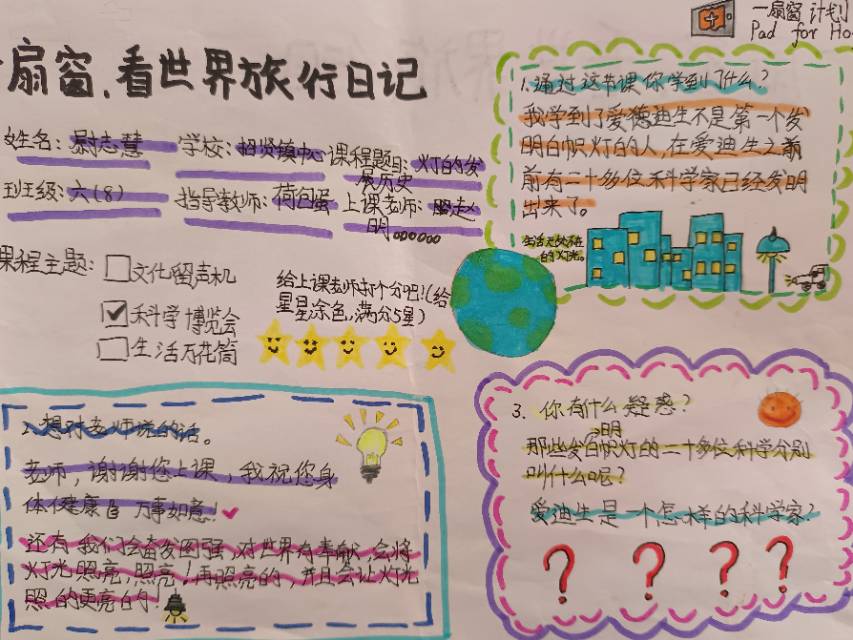 一扇窗 计划
Pad for Ho
扇窗,看世界旅行日记
姓名:尉志慧 学校:招贤镇中心 课程题目:灯的发
展历史
班级:六(8) 指导教师:荷包蛋 上课老师:照赵
明。。。。。。
课程主题:□文化留声机
☑科学博览会
□生活万花筒
给上课老师打个分吧!(给
星星涂色,满分5星)
1.通过这节课你学到了什么?
我学到了爱德迪生不是第一个发
明白帜灯的人,在爱迪生之前
前有二十多位科学家已经发明
出来了。
生活无处不在
的灯光。
2.想对老师说的话。
老师,谢谢您上课,我祝您身
体健康 万事如意!
还有 我们会奋发图强,对世界有奉献,会将
灯光照亮,照亮!再照亮的,并且会让灯光
照的更亮的!
3. 你有什么疑惑?
明
那些发白帜灯的二十多位科学分别
叫什么呢?
爱迪生是一个怎样的科学家?
? ? ? ?